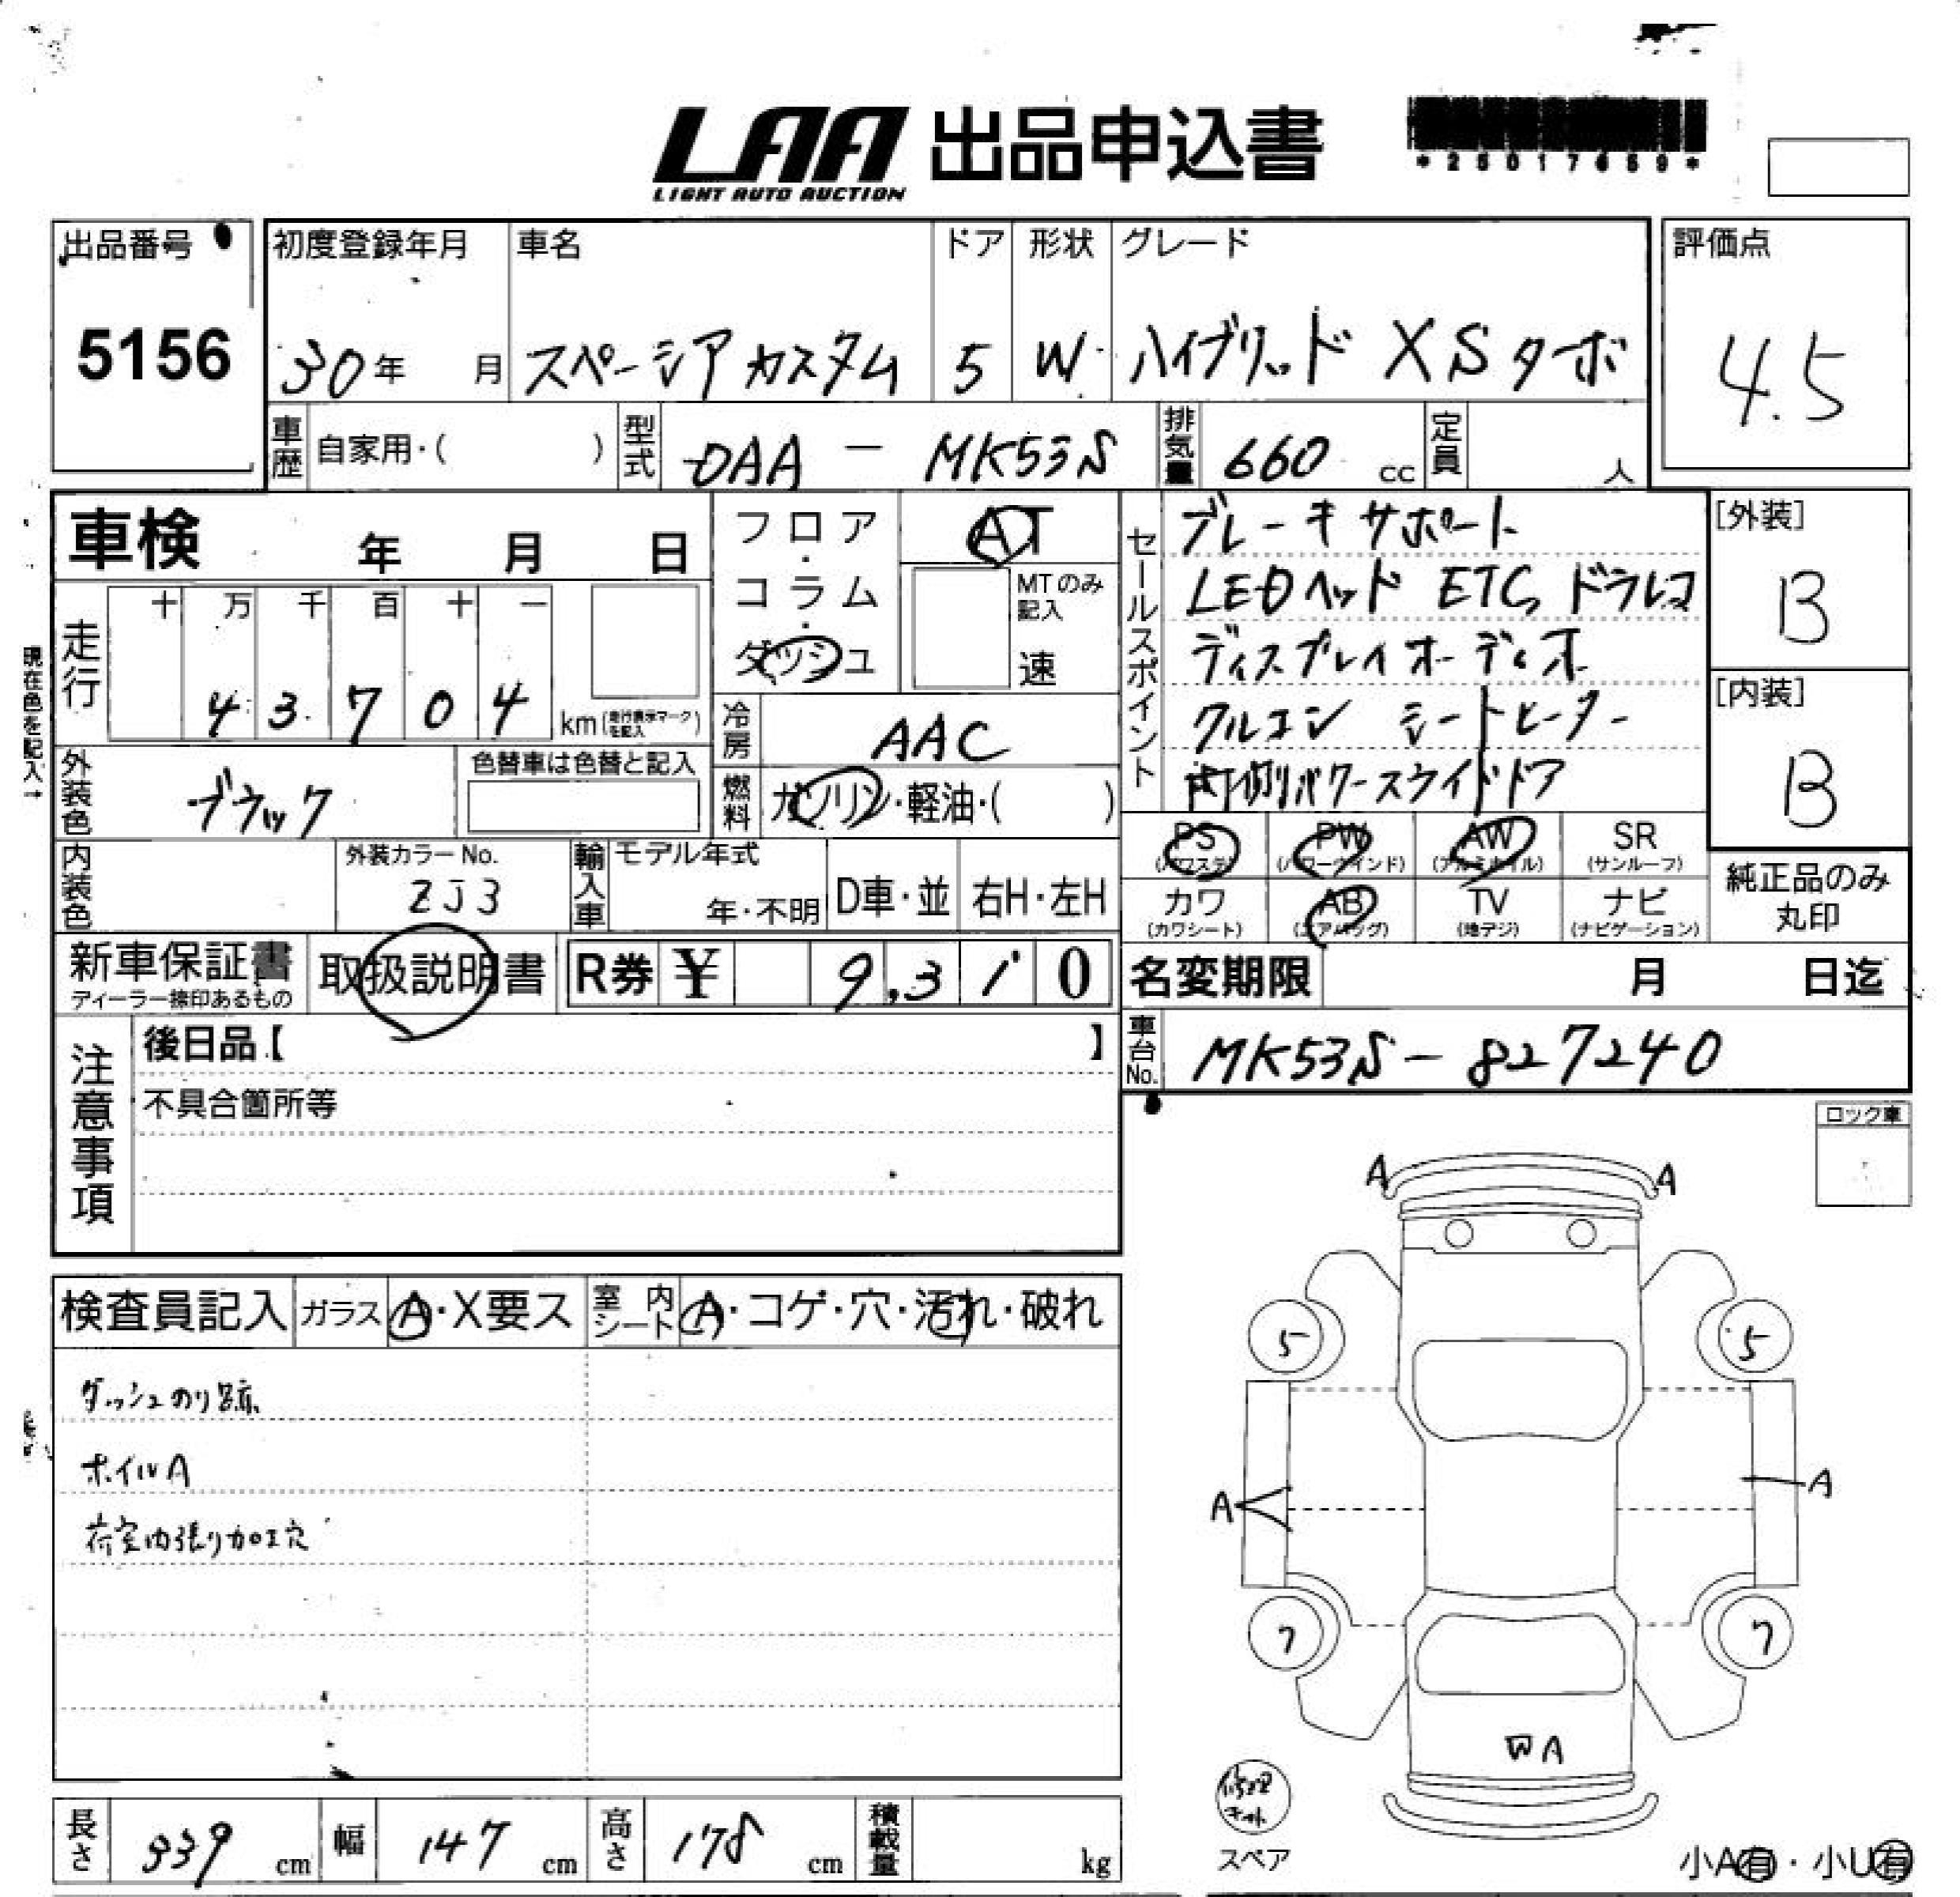 LAA 出品申込書
LIGHT AUTO AUCTION
出品番号
5156
初度登録年月
30年 月
車名
スペーシア カスタム
ドア
5
形状
W
グレード
ハイブリッド XSターボ
評価点
4.5
車歴 自家用・( )
型式 DAA - MK53S
排気量 660 cc
定員 人
車検 年 月 日
フロア・コラム・ダッシュ
AT
MTのみ記入
速
走行 十 万 千 百 十 一
4 3 7 0 4 km (走行表示マークを記入)
現在色を記入→
冷房 AAC
外装色 ブラック
色替車は色替と記入
燃料 ガソリン・軽油・( )
セールスポイント
ブレーキサポート
LEDヘッド ETC, ドラレコ
ディスプレイオーディオ
クルコン シートヒーター
両側パワースライドドア
[外装]
B
[内装]
B
内装色
外装カラーNo.
ZJ3
輸入車
モデル年式
年・不明
D車・並
右H・左H
PS (パワステ)
PW (パワーウインド)
AW (アルミホイル)
SR (サンルーフ)
カワ (カワシート)
AB (エアバッグ)
TV (地デジ)
ナビ (ナビゲーション)
純正品のみ
丸印
新車保証書
ディーラー捺印あるもの
取扱説明書
R券 ¥ 9,310
名変期限 月 日迄
車台No. MK53S-827240
注意事項
後日品【 】
不具合箇所等
ロック車
検査員記入
ガラス A・X要ス
室内シート A・コゲ・穴・汚れ・破れ
ダッシュのり跡
ホイルA
荷室内張り加工穴
A A
5 5
A A
7 7
A
修理キット
スペア
小A有・小U有
長さ 339 cm
幅 147 cm
高さ 178 cm
積載量 kg